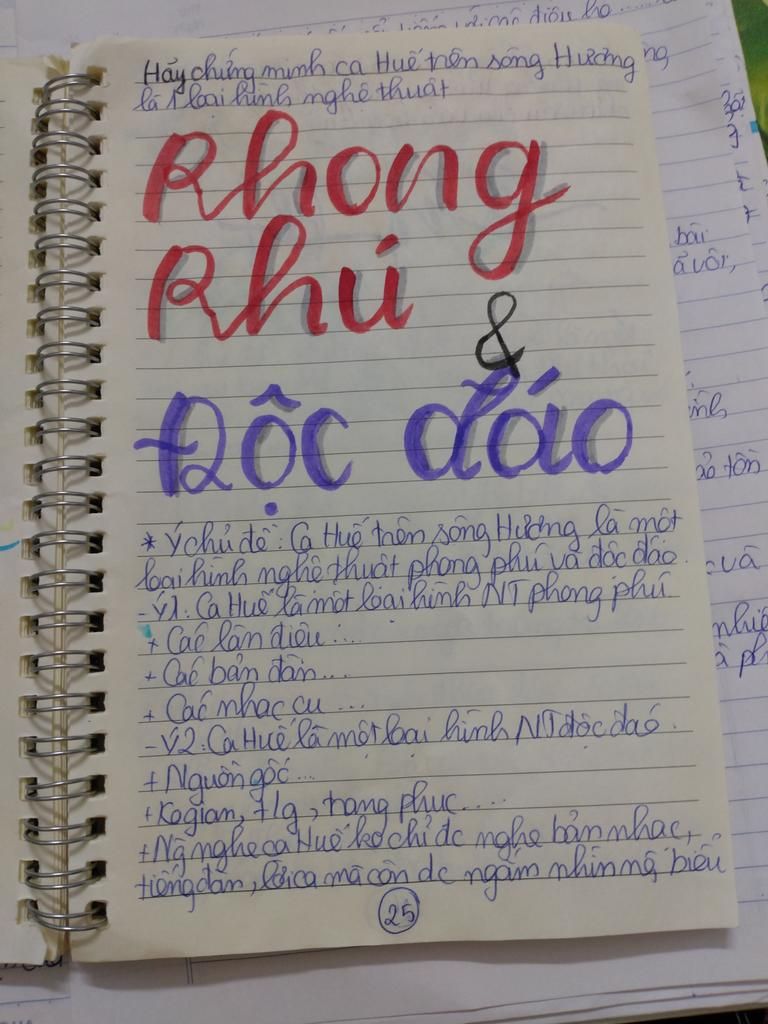 Hãy chứng minh ca Huế trên sông Hương
là 1 loại hình nghệ thuật
Phong
Phú
&
Độc đáo
* Ý chủ đề: Ca Huế trên sông Hương là một
loại hình nghệ thuật phong phú và độc đáo.
- Ý1: Ca Huế là một loại hình NT phong phú
+ Các làn điệu:...
+ Các bản đàn...
+ Các nhạc cụ ...
- Ý2: Ca Huế là một loại hình NT độc đáo.
+ Nguồn gốc...
+ Ko gian, t/g, trang phục....
+ Ng nghe ca Huế ko chỉ dc nghe bản nhạc,
tiếng đàn, lời ca mà còn dc ngắm nhìn biểu
25
bài
ả vôi,
ảo tồn
và